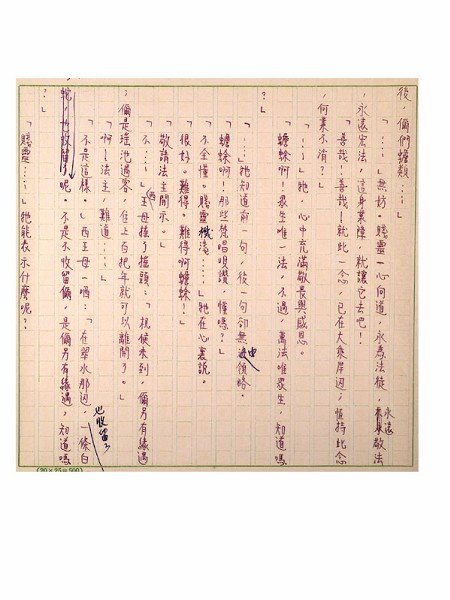 後，儞們蠟類…」
「…」無妨。賤靈一心向道，永奉法燈，永遠敬法
，永遠宏法，這身業障，就讓它去吧！」
「善哉！善哉！就此一念，已在大乘岸边；恆持此念
，何業不消？」
「…」牠，心中充滿敬長與感恩。
「蟾蜍啊！眾生唯一法，不過，萬法唯眾生，知道嗎
？」
「…」牠知道前一句，後一句卻無由領略。
「蟾蜍啊！那些梵唱唄讚，懂嗎？」
「不全懂。賤靈微淺……」牠在心裏說。
「很好。難得。難得啊蟾蜍！」
「敬請法主開示。」
「不…」西王母搖了搖頭：「机候未到，儞另有緣遇
，儞是瑶池過客，住上百把年就可以離開了。」
「啊！法主，難道…」
「不是這樣。」西王母一哂：「在翠水那边，一條白
蛇，也收留了呢。不是不收留儞，是儞另有緣遇，知道嗎
？」
「賤靈…」牠能表示什麼呢？
(20×25=500)